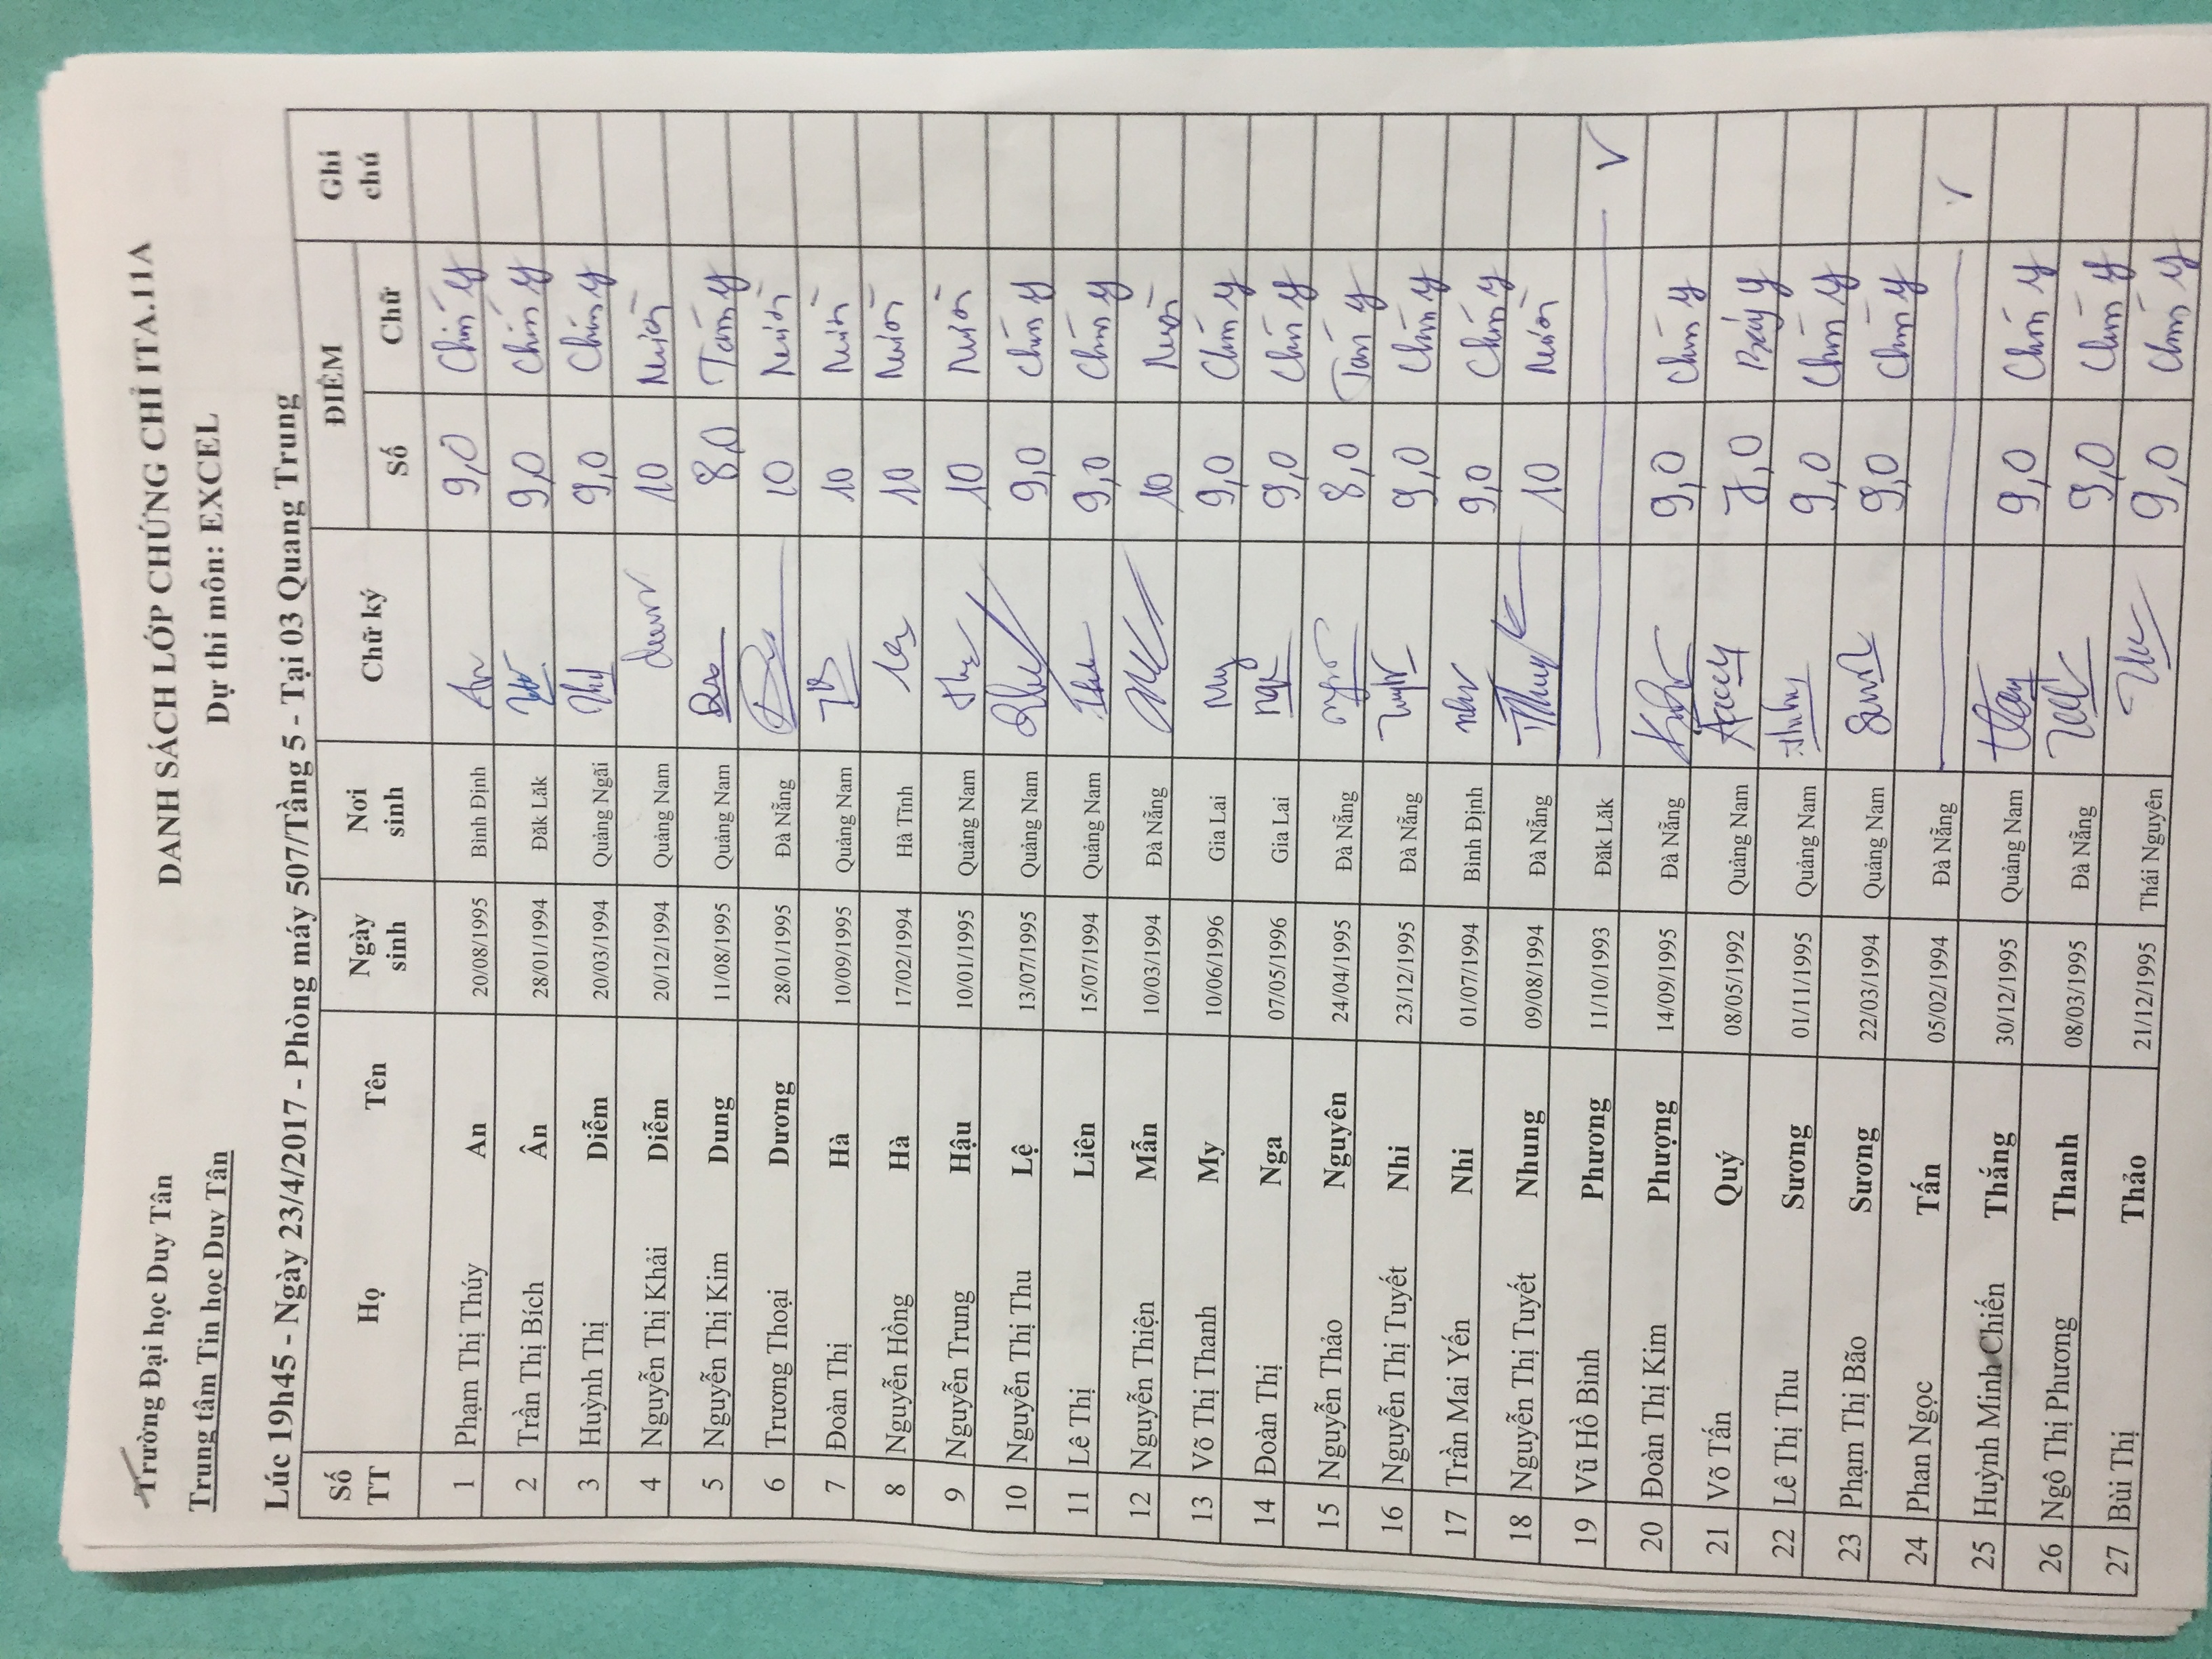 Trường Đại học Duy Tân
DANH SÁCH LỚP CHỨNG CHỈ ITA.11A
Trung tâm Tin học Duy Tân
Dự thi môn: EXCEL
Lúc 19h45 - Ngày 23/4/2017 - Phòng máy 507/Tầng 5 - Tại 03 Quang Trung
Số TT Họ Tên Ngày sinh Nơi sinh Chữ ký ĐIỂM Số Chữ Ghi chú
1 Phạm Thị Thúy An 20/08/1995 Bình Định An 9,0 Chín y
2 Trần Thị Bích Ân 28/01/1994 Đăk Lăk 9,0 Chín y
3 Huỳnh Thị Diễm 20/03/1994 Quảng Ngãi 9,0 Chín y
4 Nguyễn Thị Khải Diễm 20/12/1994 Quảng Nam 10 Mười
5 Nguyễn Thị Kim Dung 11/08/1995 Quảng Nam 8,0 Tám y
6 Trương Thoại Dương 28/01/1995 Đà Nẵng 10 Mười
7 Đoàn Thị Hà 10/09/1995 Quảng Nam 10 Mười
8 Nguyễn Hồng Hà 17/02/1994 Hà Tĩnh 10 Mười
9 Nguyễn Trung Hậu 10/01/1995 Quảng Nam 10 Mười
10 Nguyễn Thị Thu Lệ 13/07/1995 Quảng Nam 9,0 Chín y
11 Lê Thị Liên 15/07/1994 Quảng Nam 9,0 Chín y
12 Nguyễn Thiện Mẫn 10/03/1994 Đà Nẵng 10 Mười
13 Võ Thị Thanh My 10/06/1996 Gia Lai My 9,0 Chín y
14 Đoàn Thị Nga 07/05/1996 Gia Lai Nga 9,0 Chín y
15 Nguyễn Thảo Nguyên 24/04/1995 Đà Nẵng 8,0 Tám y
16 Nguyễn Thị Tuyết Nhi 23/12/1995 Đà Nẵng 9,0 Chín y
17 Trần Mai Yến Nhi 01/07/1994 Bình Định 9,0 Chín y
18 Nguyễn Thị Tuyết Nhung 09/08/1994 Đà Nẵng 10 Mười
19 Vũ Hồ Bình Phương 11/10/1993 Đăk Lăk V
20 Đoàn Thị Kim Phượng 14/09/1995 Đà Nẵng 9,0 Chín y
21 Võ Tấn Quý 08/05/1992 Quảng Nam 7,0 Bảy y
22 Lê Thị Thu Sương 01/11/1995 Quảng Nam 9,0 Chín y
23 Phạm Thị Bão Sương 22/03/1994 Quảng Nam 9,0 Chín y
24 Phan Ngọc Tấn 05/02/1994 Đà Nẵng V
25 Huỳnh Minh Chiến Thắng 30/12/1995 Quảng Nam 9,0 Chín y
26 Ngô Thị Phương Thanh 08/03/1995 Đà Nẵng 9,0 Chín y
27 Bùi Thị Thảo 21/12/1995 Thái Nguyên 9,0 Chín y